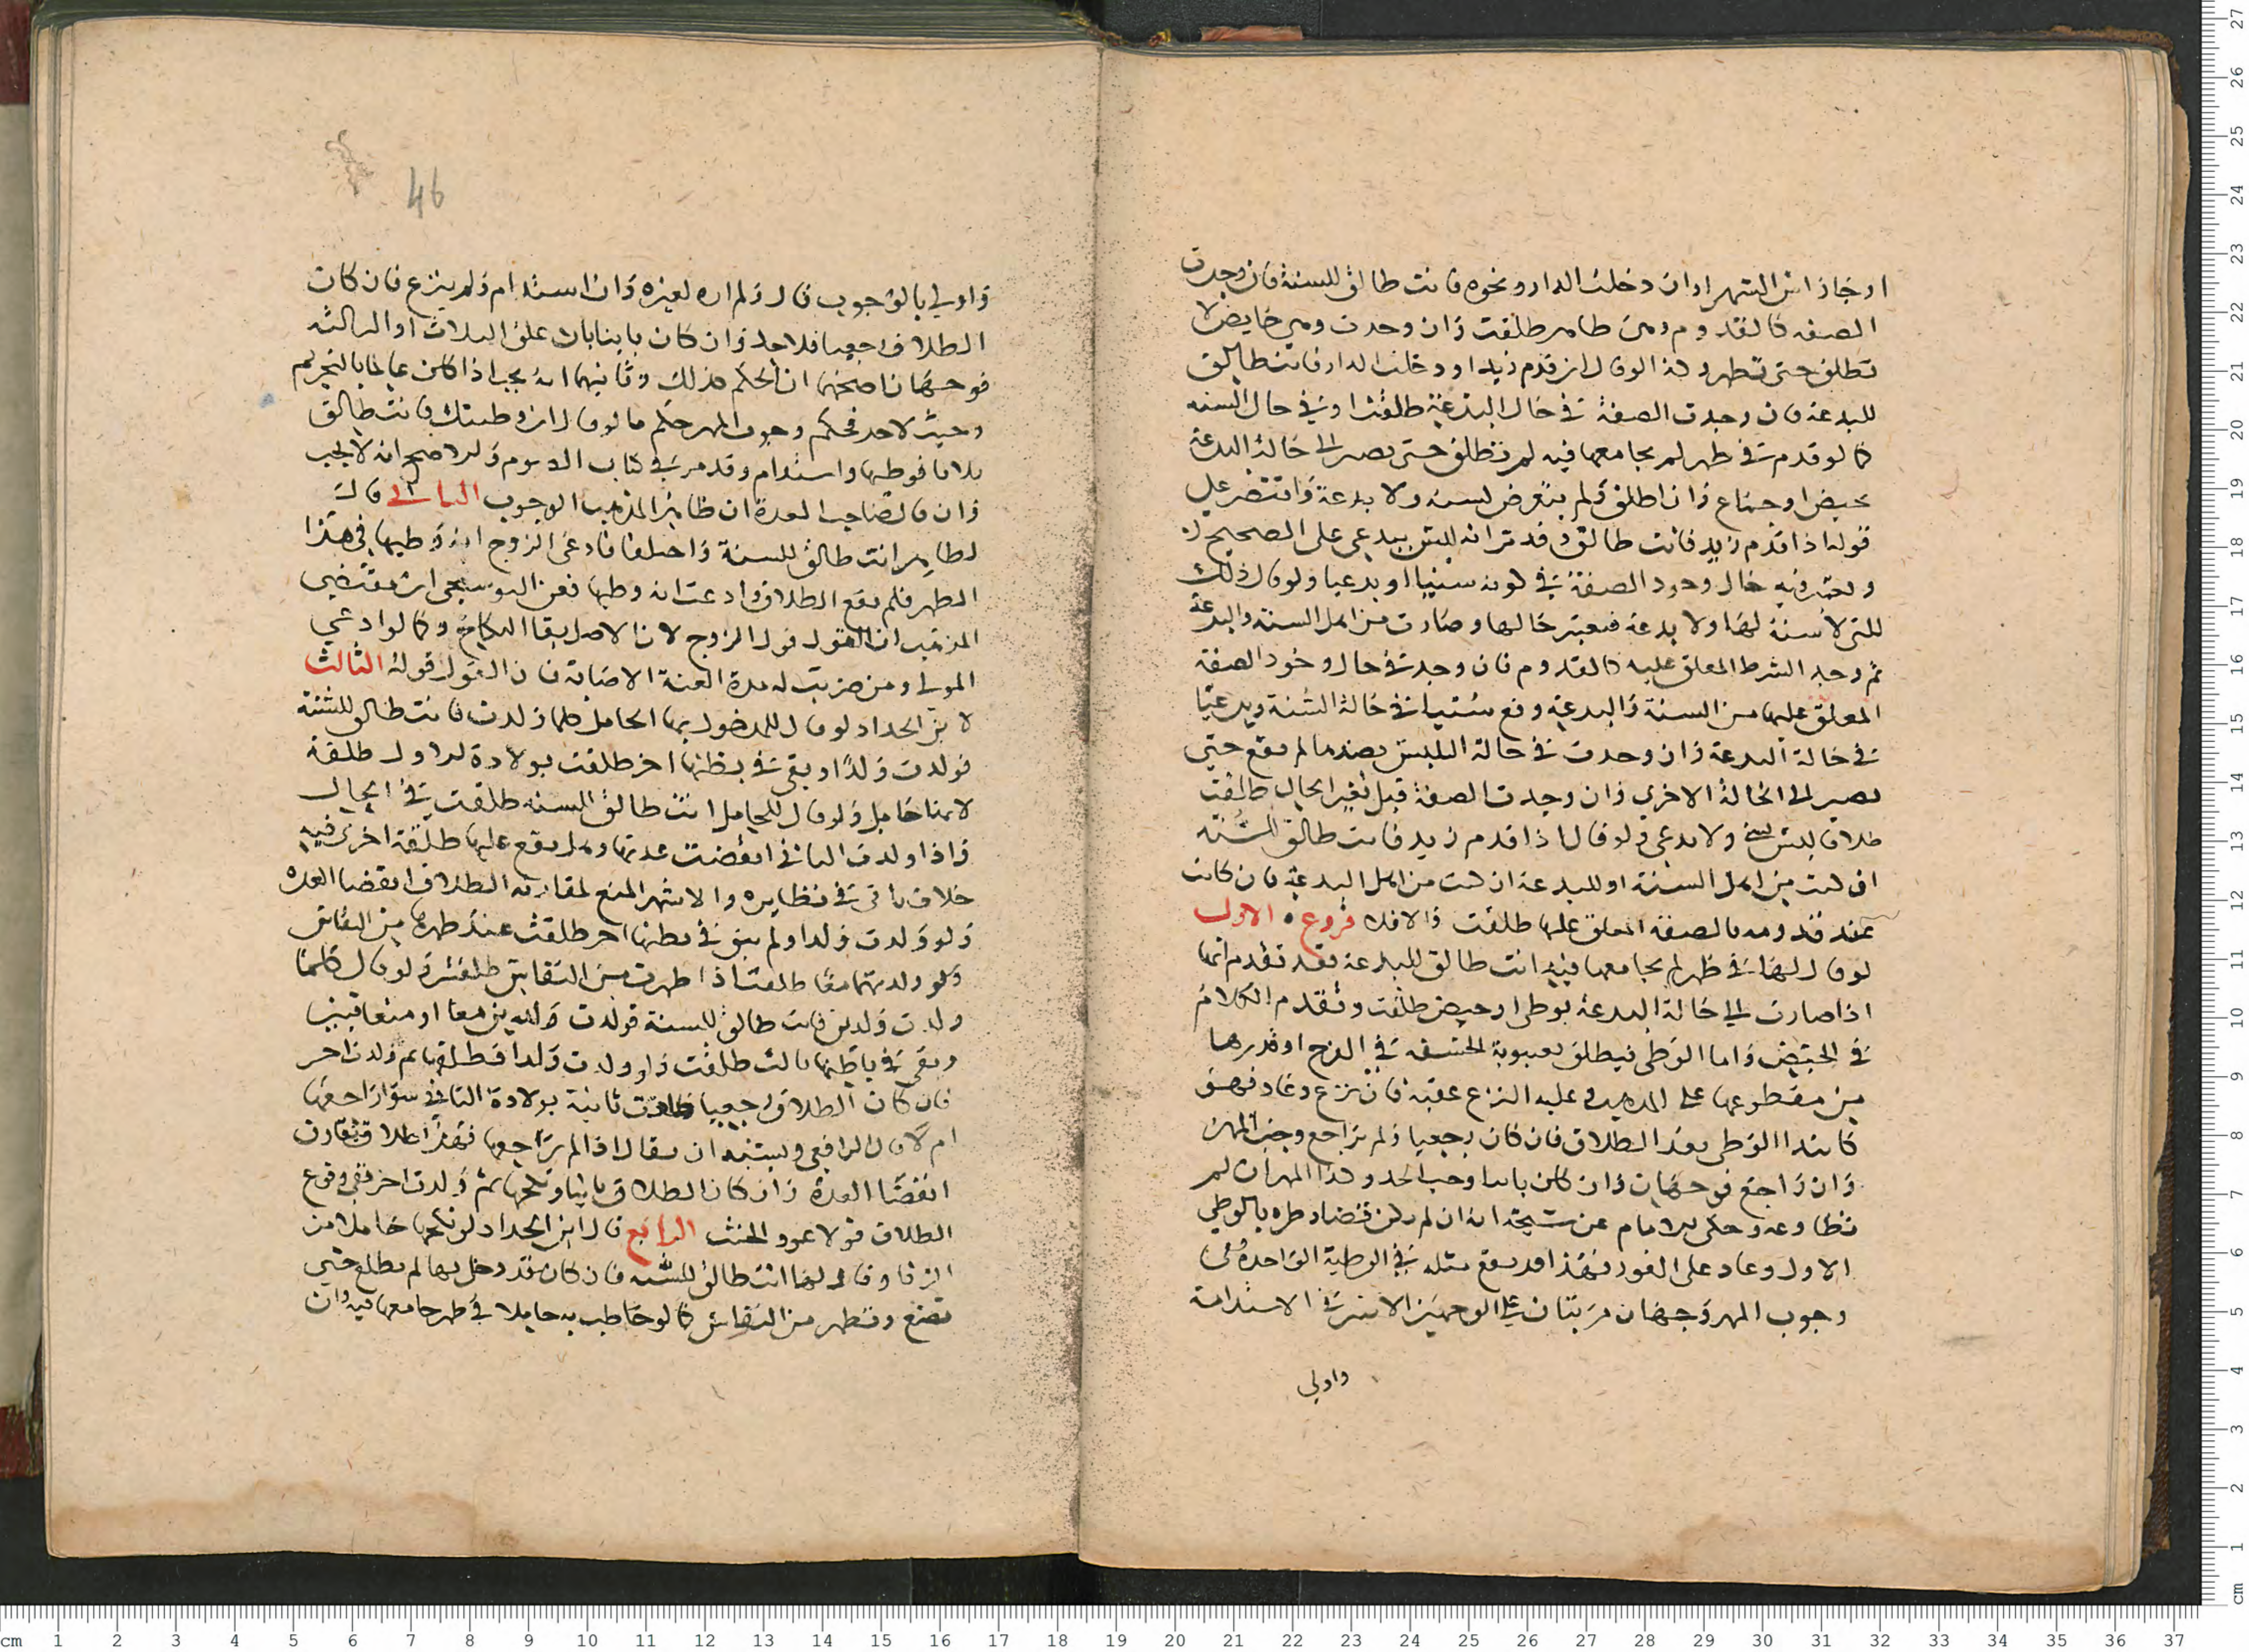 او جا راس الشهر او ان دخلت الدار ونحوه فانت طالق للسنة فان وجدت
الصفه كالقدوم وهي طاهر طلقت وان وجدت وهي حايض لا
تطلق حتى تطهر وكذا لو قال ان قدم زيد او دخلت الدار فانت طالق
للبدعة فان وجدت الصفة في حال البدعة طلقت او في حال السنه
كما لو قدم في طهر لم يجامعها فيه لم تطلق حتى تصير الى حالة البدعة
بحيض او جماع وان اطلق ولم يتعرض لسنة ولا بدعة واقتصر على
قوله اذا قدم زيد فانت طالق فقد مر انه ليس ببدعي على الصحيح
ويعتبر فيه حال وجود الصفة في كونه سنيا او بدعيا ولو قال ذلك
للتي لا سنة لها ولا بدعة فيعتبر حالها وصارت من اهل السنة والبدعة
ثم وجد الشرط المعلق عليه كالقدوم فان وجد في حال وجود الصفة
المعلق عليها من السنة والبدعة وقع سنيا في حالة السنة وبدعيا
في حالة البدعة وان وجدت في حالة التلبس بضدها لم يقع حتى
تصير الى الحالة الاخرى وان وجدت الصفة قبل تغير الحال طلقت
طلاقا ليس بسني ولا بدعي ولو قال اذا قدم زيد فانت طالق للسنه
ان كنت من اهل السنة او للبدعة ان كنت من اهل البدعة فان كانت
عند قدومه بالصفة المعلق عليها طلقت والا فلا فروع الاول
لو قال لها في طهر لم يجامعها فيه انت طالق للبدعة فقد تقدم انها
اذا صارت الى حالة البدعة بوطى او حيض طلقت وتقدم الكلام
في الحيض واما الوطى فيطلق بغيبوبة الحشفة في الفرج او قدرها
من مقطوعها على المذهب وعليه النزع عقبه فان نزع وعاد فهو
كابتدا الوطى بعد الطلاق فان كان رجعيا ولم يراجع وجب المهر
وان راجع فوجهان وان كان باينا وجب الحد وكذا المهر ان لم
تطاوعه وحكى الامام عن شيخه انه ان لم يكن قضا وطره بالوطي
الاول وعاد على الفور فهذا قد يقع مثله في الوطية الواحدة ففي
وجوب المهر وجهان مرتبان على الوجهين الاتيين في الاستدامة
واولى
46
واولى بالوجوب قال ولم اره لغيره وان استدام ولم ينزع فان كان
الطلاق رجعيا فلا حد وان كان باينا بان علق الثلاث او الثالثه
فوجهان اصحهما ان الحكم كذلك وثانيهما انه يجب اذا كان عالما بالتحريم
وحيث لا حد فحكم وجوب المهر حكم ما لو قال ان وطيتك فانت طالق
ثلاثا فوطيها واستدام وقد مر في كتاب الصوم والاصح انه لا يجب
وان قال صاحب العدة ان ظاهر المذهب الوجوب الثاني قال
لطاهر انت طالق للسنة واختلفا فادعى الزوج انه وطيها في هذا
الطهر فلم يقع الطلاق وادعت انه وطيها فعن البوسنجي ان مقتضى
المذهب ان القول قول الزوج لان الاصل بقا النكاح وكما لو ادعى
المولى ومن ضربت له مدة العنة الاصابة فان القول قوله الثالث
لابن الحداد لو قال للمدخول بها الحامل كلما ولدت فانت طالق للسنة
فولدت ولدا وبقي في بطنها اخر طلقت بولادة الاول طلقة
لانها حامل ولو قال للحامل انت طالق للسنه طلقت في الحال
واذا ولدت الثاني انقضت عدتها وهل يقع عليها طلقة اخرى فيه
خلاف ياتي في نظايره والاشهر المنع لمقارنه الطلاق انقضا العده
ولو ولدت ولدا ولم يبق في بطنها اخر طلقت عند طهرها من النفاس
ولو ولدتهما معا طلقت اذا طهرت من النفاس طلقتين ولو قال كلما
ولدت ولدين فانت طالق للسنة فولدت ولدين معا او متعاقبين
وبقي في بطنها ثالث طلقت ولو ولدت ولدا فطلقها ثم ولدت اخر
فان كان الطلاق رجعيا طلقت ثانية بولادة الثاني سوا راجعها
ام لا قال الرافعي ويشبه ان يقال اذا لم يراجعها فهذا طلاق يقارن
انقضا العدة وان كان الطلاق باينا ونكحها ثم ولدت اخر ففي وقوع
الطلاق قولا عود الحنث الرابع قال ابن الحداد لو نكح حاملا من
الزنا وقال لها انت طالق للسنه فان كان قد دخل بها لم تطلق حتى
تضع وتطهر من النفاس كما لو خاطب به حايلا في طهر جامعها فيه وان